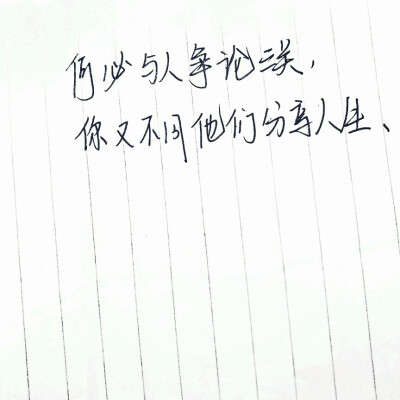 何必与人争论三关,
你又不同他们分享人生、